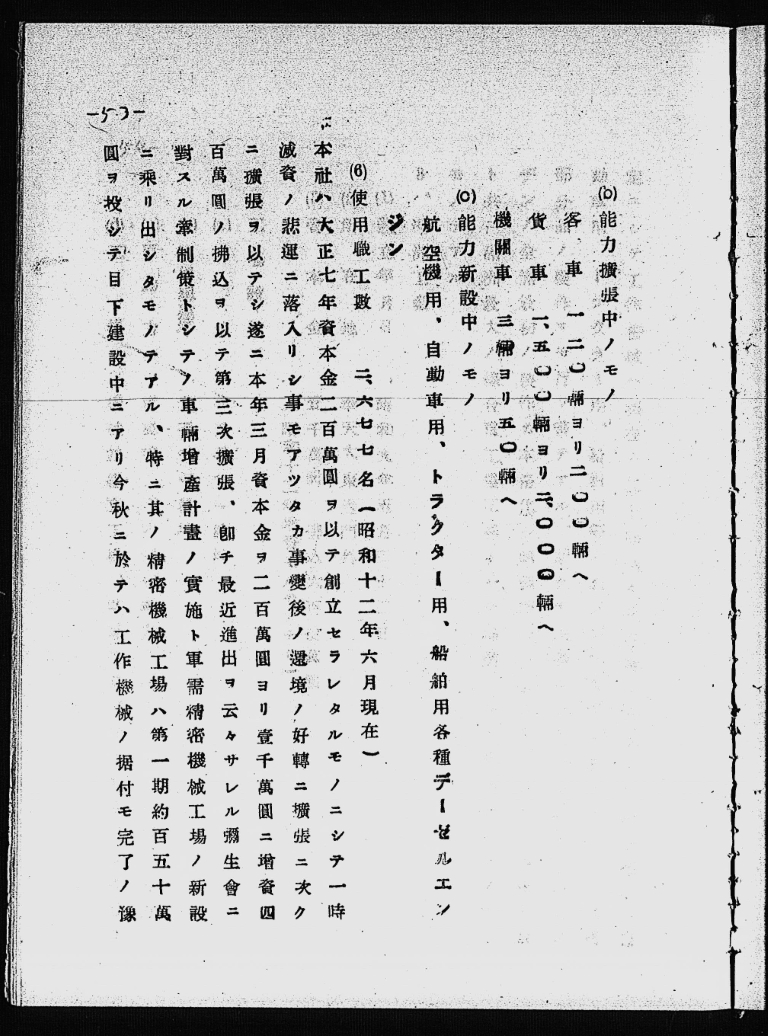 -53-
(b) 能力擴張中ノモノ
客車 一二〇輛ヨリ二〇〇輛ヘ
貨車 一、五〇〇輛ヨリ二、〇〇〇輛ヘ
機關車 三輛ヨリ五〇輛ヘ
(c) 能力新設中ノモノ
航空機用、自動車用、トラクター用、船舶用各種デーゼルエン
ジン
(6) 使用職工數 二、六七七名(昭和十二年六月現在)
本社ハ大正七年資本金二百萬圓ヲ以テ創立セラレタルモノニシテ一時
減資ノ悲運ニ落入リシ事モアツタカ事變後ノ還境ノ好轉ニ擴張ニ次ク
ニ擴張ヲ以テシ遂ニ本年三月資本金ヲ二百萬圓ヨリ壹千萬圓ニ增資四
百萬圓ノ拂込ヲ以テ第三次擴張、卽チ最近進出ヲ云々サレル彌生會ニ
對スル牽制策トシテノ車輛增產計畫ノ實施ト軍需精密機械工場ノ新設
ニ乘リ出シタモノテアル、特ニ其ノ精密機械工場ハ第一期約百五十萬
圓ヲ投シテ目下建設中ニアリ今秋ニ於テハ工作機械ノ据付モ完了ノ豫